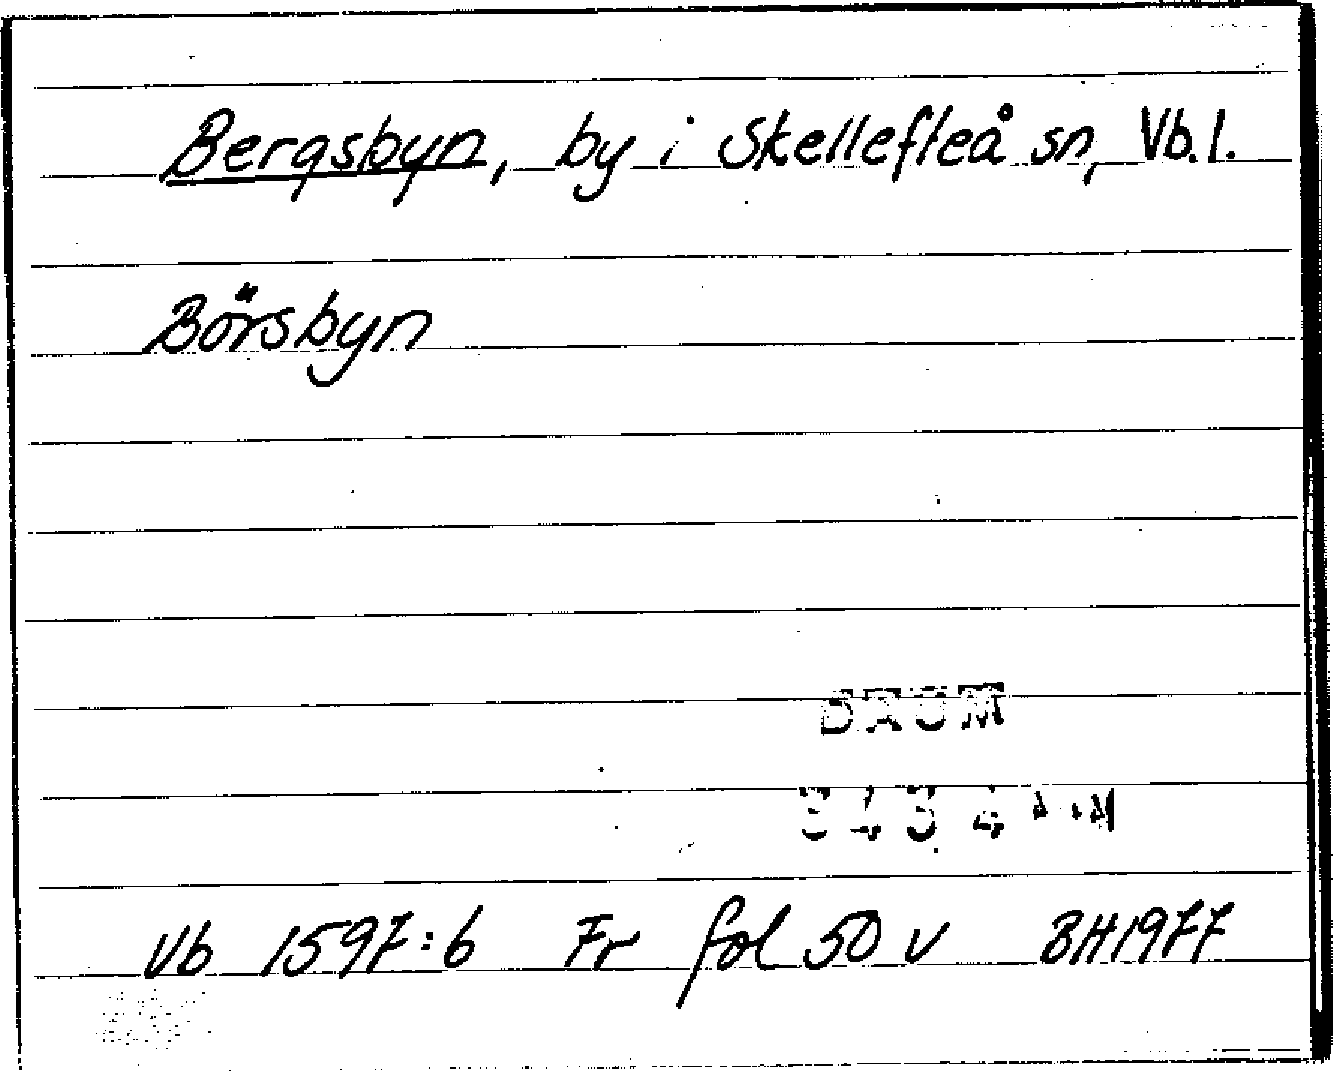 Bergsbyn, by i Skellefteå sn, Vb.l.
Börsbyn
DAUM
3134
Vb 1597:6 Fr fol 50 v BH1977